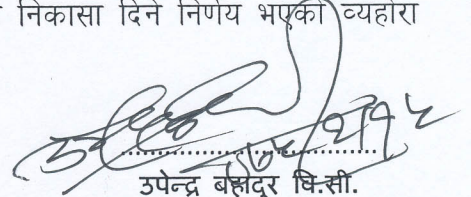 निकासा दिने निर्णय भएको व्यहोरा
उपेन्द्र बहादुर वि.सी.